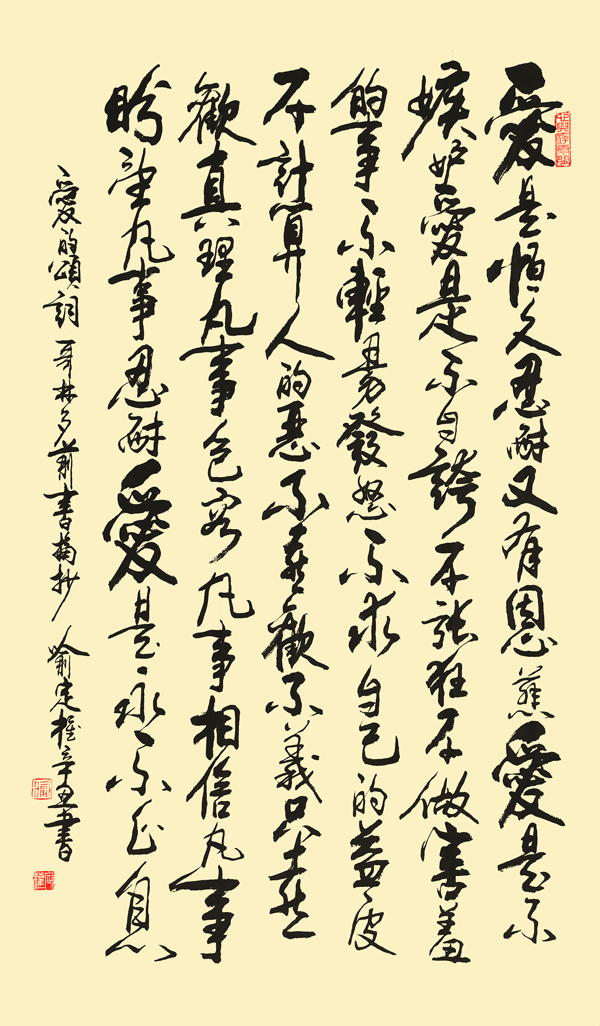 愛是恒久忍耐又有恩慈愛是不
嫉妒愛是不自誇不張狂不做害羞
的事不輕易發怒不求自己的益處
不計算人的惡不喜歡不義只喜
歡真理凡事包容凡事相信凡事
盼望凡事忍耐愛是永不止息
愛的頌詞 哥林多前書摘抄 喻 辛丑書